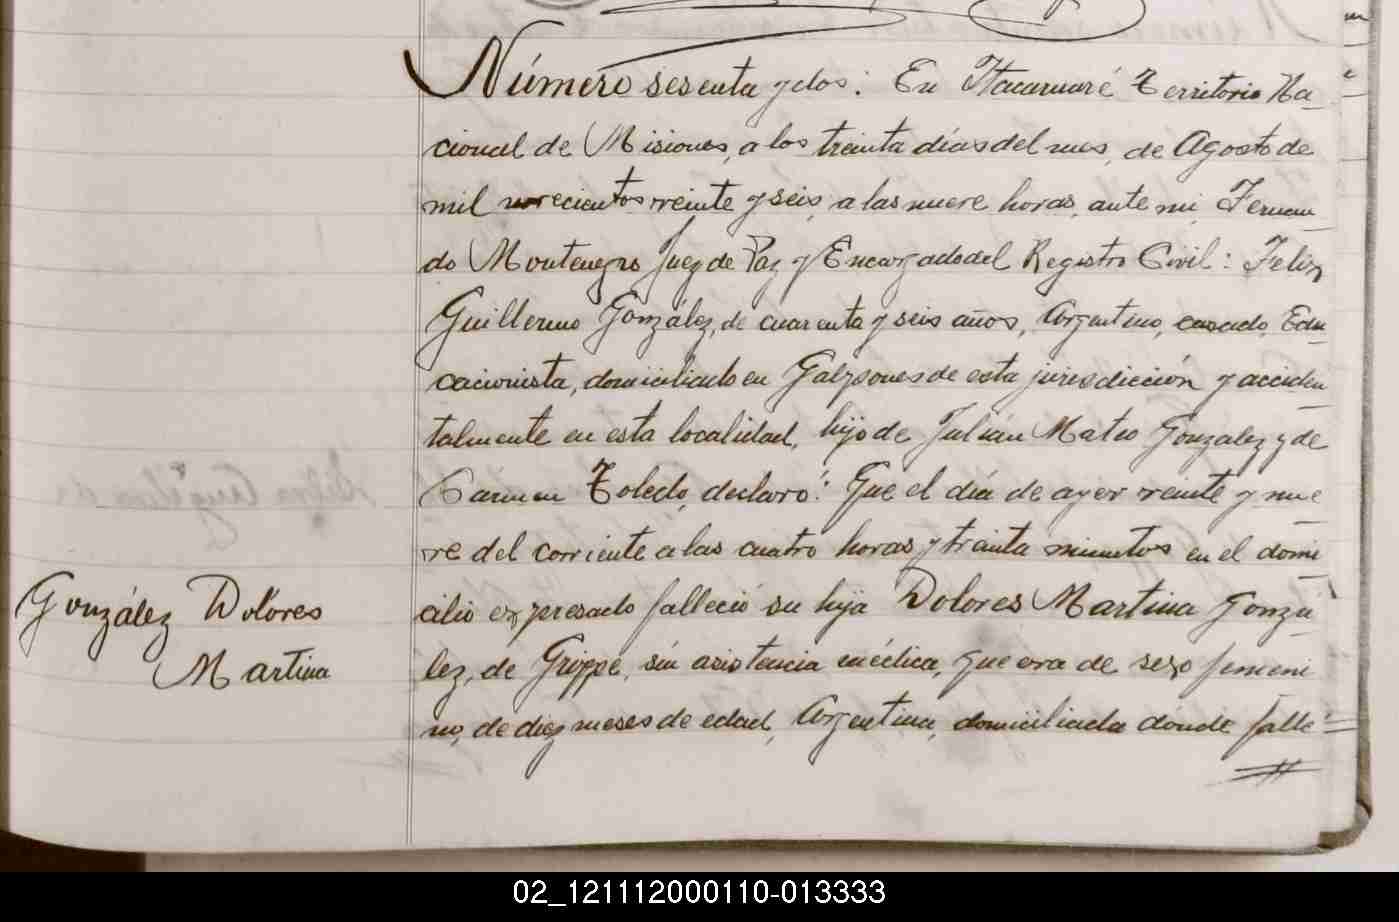 Número sesenta y dos: En Itacaruaré Territorio Na-
cional de Misiones, a los treinta días del mes, de Agosto de
mil novecientos veinte y seis, a las nueve horas, ante mi, Fernan-
do Montenegro Juez de Paz y Encargado del Registro Civil: Felix
Guillermo González, de cuarenta y seis años, Argentino, casado, Edu-
cacionista, domiciliado en Galpones de esta jurisdicción y acciden-
talmente en esta localidad, hijo de Julián Mateo Gonzalez y de
Carmen Toledo, declaró: Que el día de ayer veinte y nue-
ve del corriente a las cuatro horas y treinta minutos en el domi-
González Dolores
Martina
cilio expresado falleció su hija Dolores Martina Gonzá-
lez, de Grippe, sin asistencia médica, que era de sexo femeni-
no, de diez meses de edad, Argentina, domiciliada dónde falle-
02_121112000110-013333